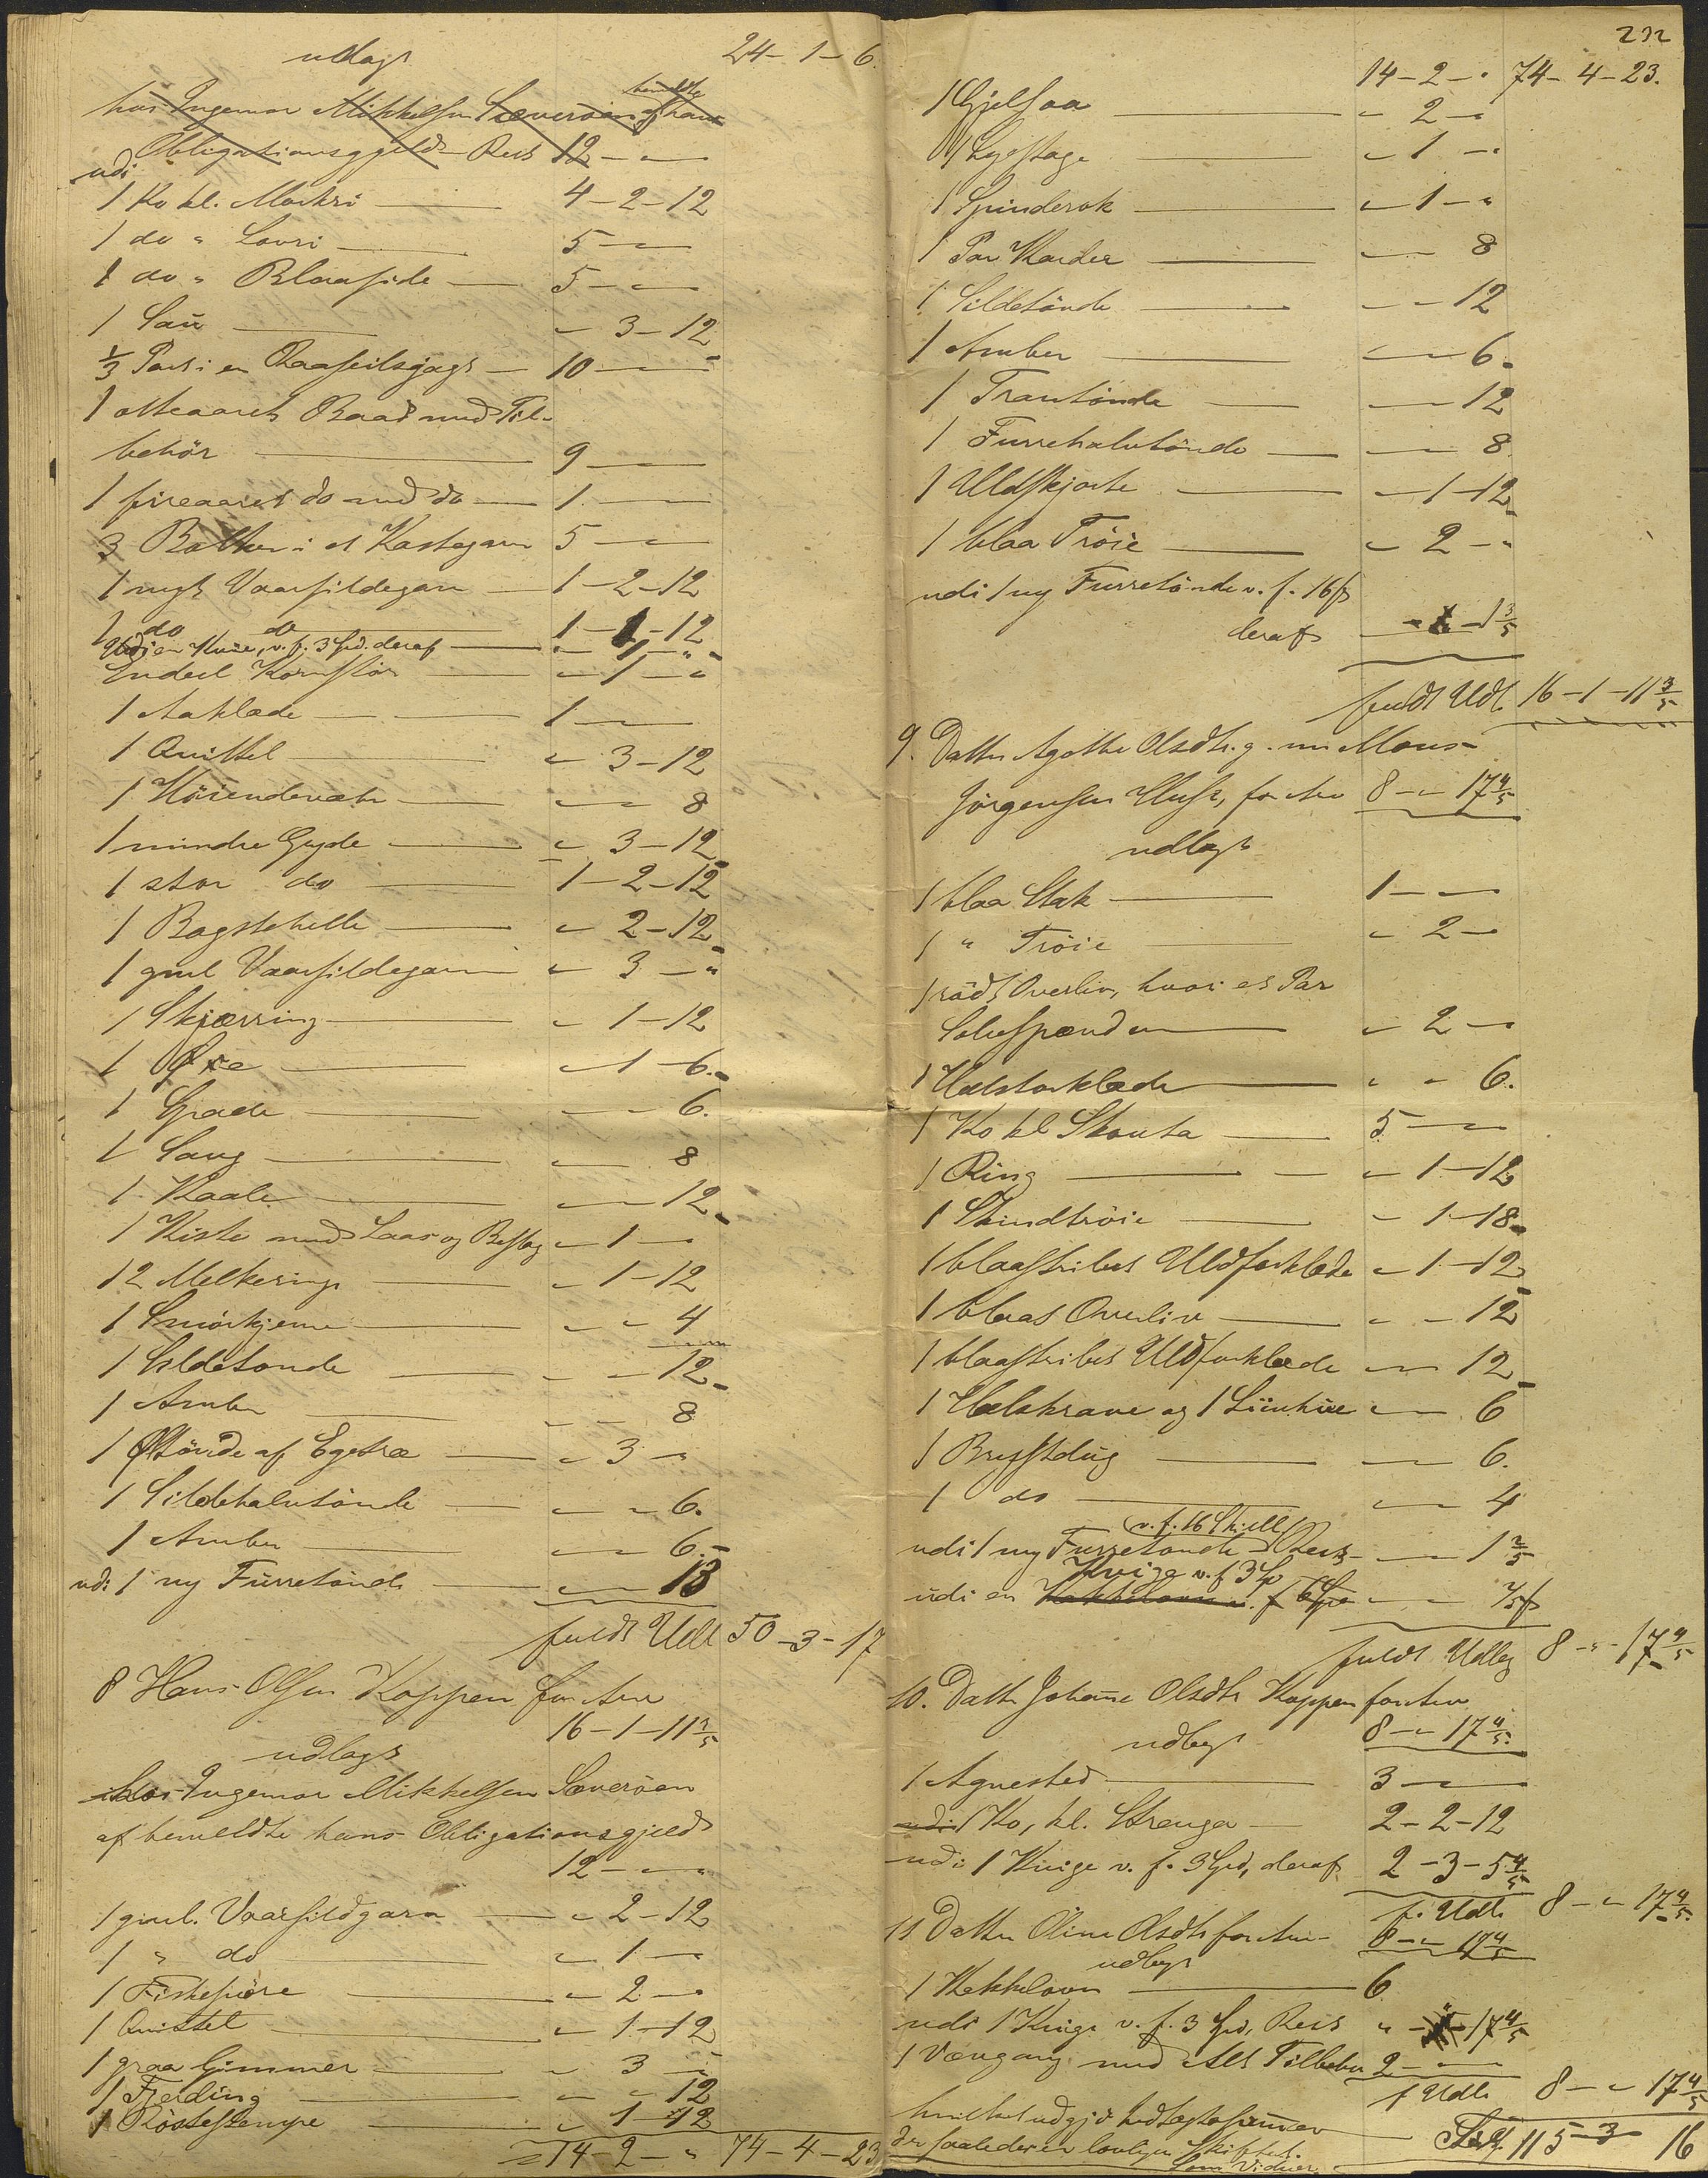 udlagt 24 - 1 - 6.
bemeldte
hos Ingemar Mikkelsen Sæverøen af hans
Obligationsgjeld Rest 12 - " - "
udi
1 Ko kl. Morkri 4 - 2 - 12
1 do " Lovri 5 - " - "
1 do " Blaaside 5 - " - "
1 Sau " - 3 - 12
1/3 Part i en Raaseilsjagt 10 - " - "
1 otteaaret Baad med Til-
behör 9 - " - "
1 fireaaret do med do 1 - " - "
3 Bolker i et Kastegarn 5 - " - "
1 nyt Vaarsildegarn 1 - 2 - 12
1 do do 1 - 1 - 12
Udi en Kvie, v. f. 3 Spd. deraf " - 1 - "
Endeel Kornstör " - 1 - "
1 Aaklæde 1 - " - "
1 Qvittel " - 3 - 12
1 Höiendevær " - " - 8
1 mindre Gryde " - 3 - 12
1 stor do 1 - 2 - 12
1 Bagstehelle " - 2 - 12
1 gml Vaarsildegarn " - 3 - "
1 Skjærring " - 1 - 12
1 Öxe " - 1 - 6.
1 Spade " - " - 6.
1 Saug " - " - 8
1 Kaabe " - " - 12
1 Kiste med Laas og Beslag " - 1 - "
12 Melkeringe " - 1 - 12
1 Smörkjerne " - " - 4
1 Sildetønde " - " - 12
1 Amber " - " - 8
1 Øltönde af Egetræ " - 3 - "
1 Sildehalvtönde " - " - 6.
1 Amber " - " - 6.
udi 1 ny Furretönde " - " - 13
fuldt Udl 50 - 3 - 17
8 Hans Olsen Koppen for Arv
16 - 1 - 11 3/5
udlagt
hos Ingemar Mikkelsen Sæverøen
af bemeldte hans Obligationsgjeld
12 - " - "
1 gml. Vaarsildgarn " - 2 - 12
1 " do " - 1 - "
1 Fiskesnöre " - 2 - "
1 Qvittel " - 1 - 12
1 graa Gimmer " - 3 - "
1 Fjerding " - " - 12
1 " - 1 - 12
14 - 2 - " 74 - 4 - 23
232
14 - 2 - " 74 - 4 - 23.
1 Gjelsaa " - 2 - "
1 Lysestage " - 1 - "
1 Spinderok " - 1 - "
1 Par Karder " - " - 8
1 Sildetönde " - " - 12
1 Amber " - " - 6.
1 Trantönde " - " - 12
1 Furrehalvtönde " - " - 8
1 Uldskjorte " - 1 - 12
1 blaa Tröie " - 2 - "
udi 1 ny Furretönde v. f. 16 ß
deraf " - " - 1 3/5
fuldt Udl. 16 - 1 - 11 3/5
9. Datter Agathe Olsdtr. g. m. Mons
Jörgensen Huse, for Arv 8 - " - 17 4/5
udlagt
1 blaa Stak 1 - " - "
1 " Tröie " - 2 - "
1 rödt Overliv, hvori et Par
Sölvspænder " - 2 - "
1 Halstørklæde " - " - 6.
1 Ko kl Skouta 5 - " - "
1 Ring " - 1 - 12
1 Skindtröie " - 1 - 18
1 blaastribet Uldforklæde " - 1 - 12
1 blaat Overliv " - " - 12
1 blaastribet Uldforklæde " - " - 12
1 Halskrave og 1 Liinhue " - " - 6
1 Brystdug " - " - 6.
1 do " - " - 4
v. f. 16 Skill
udi 1 ny Furretönde Rest " - " - 1 2/5
Kvige v. f. 3 Sp
udi en Kakkelovn v. f 6 Spd " - " - 2/5 ß
fuldt Udlæg 8 - " - 17 4/5
10. Datter Johanne Olsdtr Koppen for Arv
udlagt 8 - " - 17 4/5
1 Agnested 3 - " - "
udi 1 Ko, kl. Strenga 2 - 2 - 12
udi 1 Kvige v. f. 3 Spd, deraf 2 - 3 - 5 4/5
f. Udl. 8 - " - 17 4/5
11 Datter Oline Olsdtr for Arv 8 - " - 17 4/5
udlagt
1 Kakkelovn 6
udi 1 Kvige v. f. 3 Spd, Rest " - " - 17 4/5
1 Vævgang med Alt Tilbehør 2 - " - "
f Udl 8 - " - 17 4/5
hvilket udgjør Indtægtssummen 115 - 3 - 16
der saaledes er lovligen Skiftet.
Som Vidner